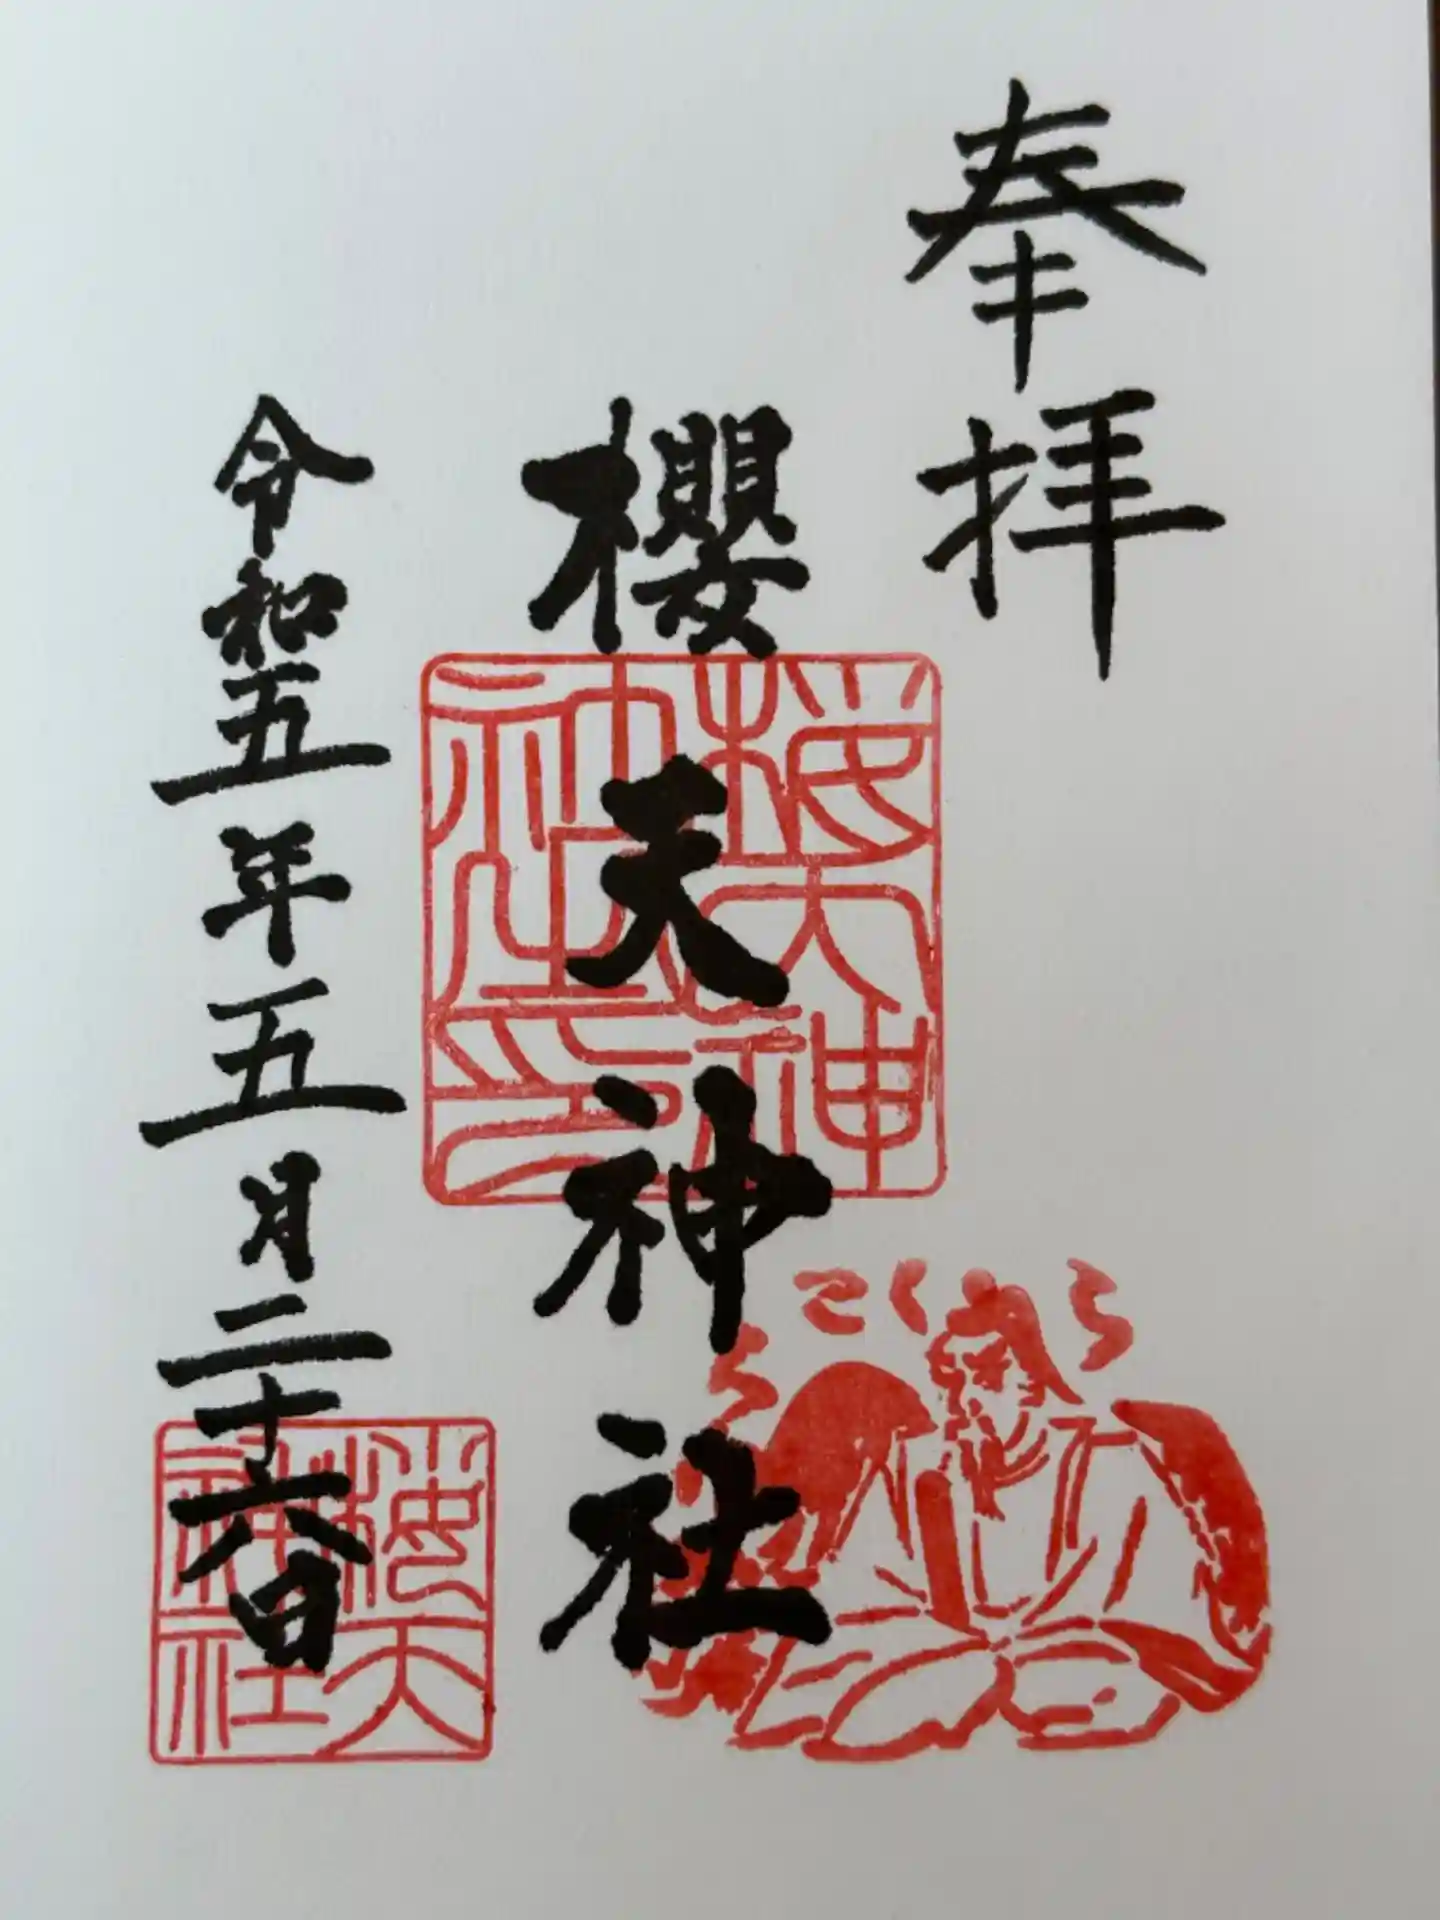 奉拝
櫻天神社
令和五年五月二十六日
櫻天神社印
櫻天神社